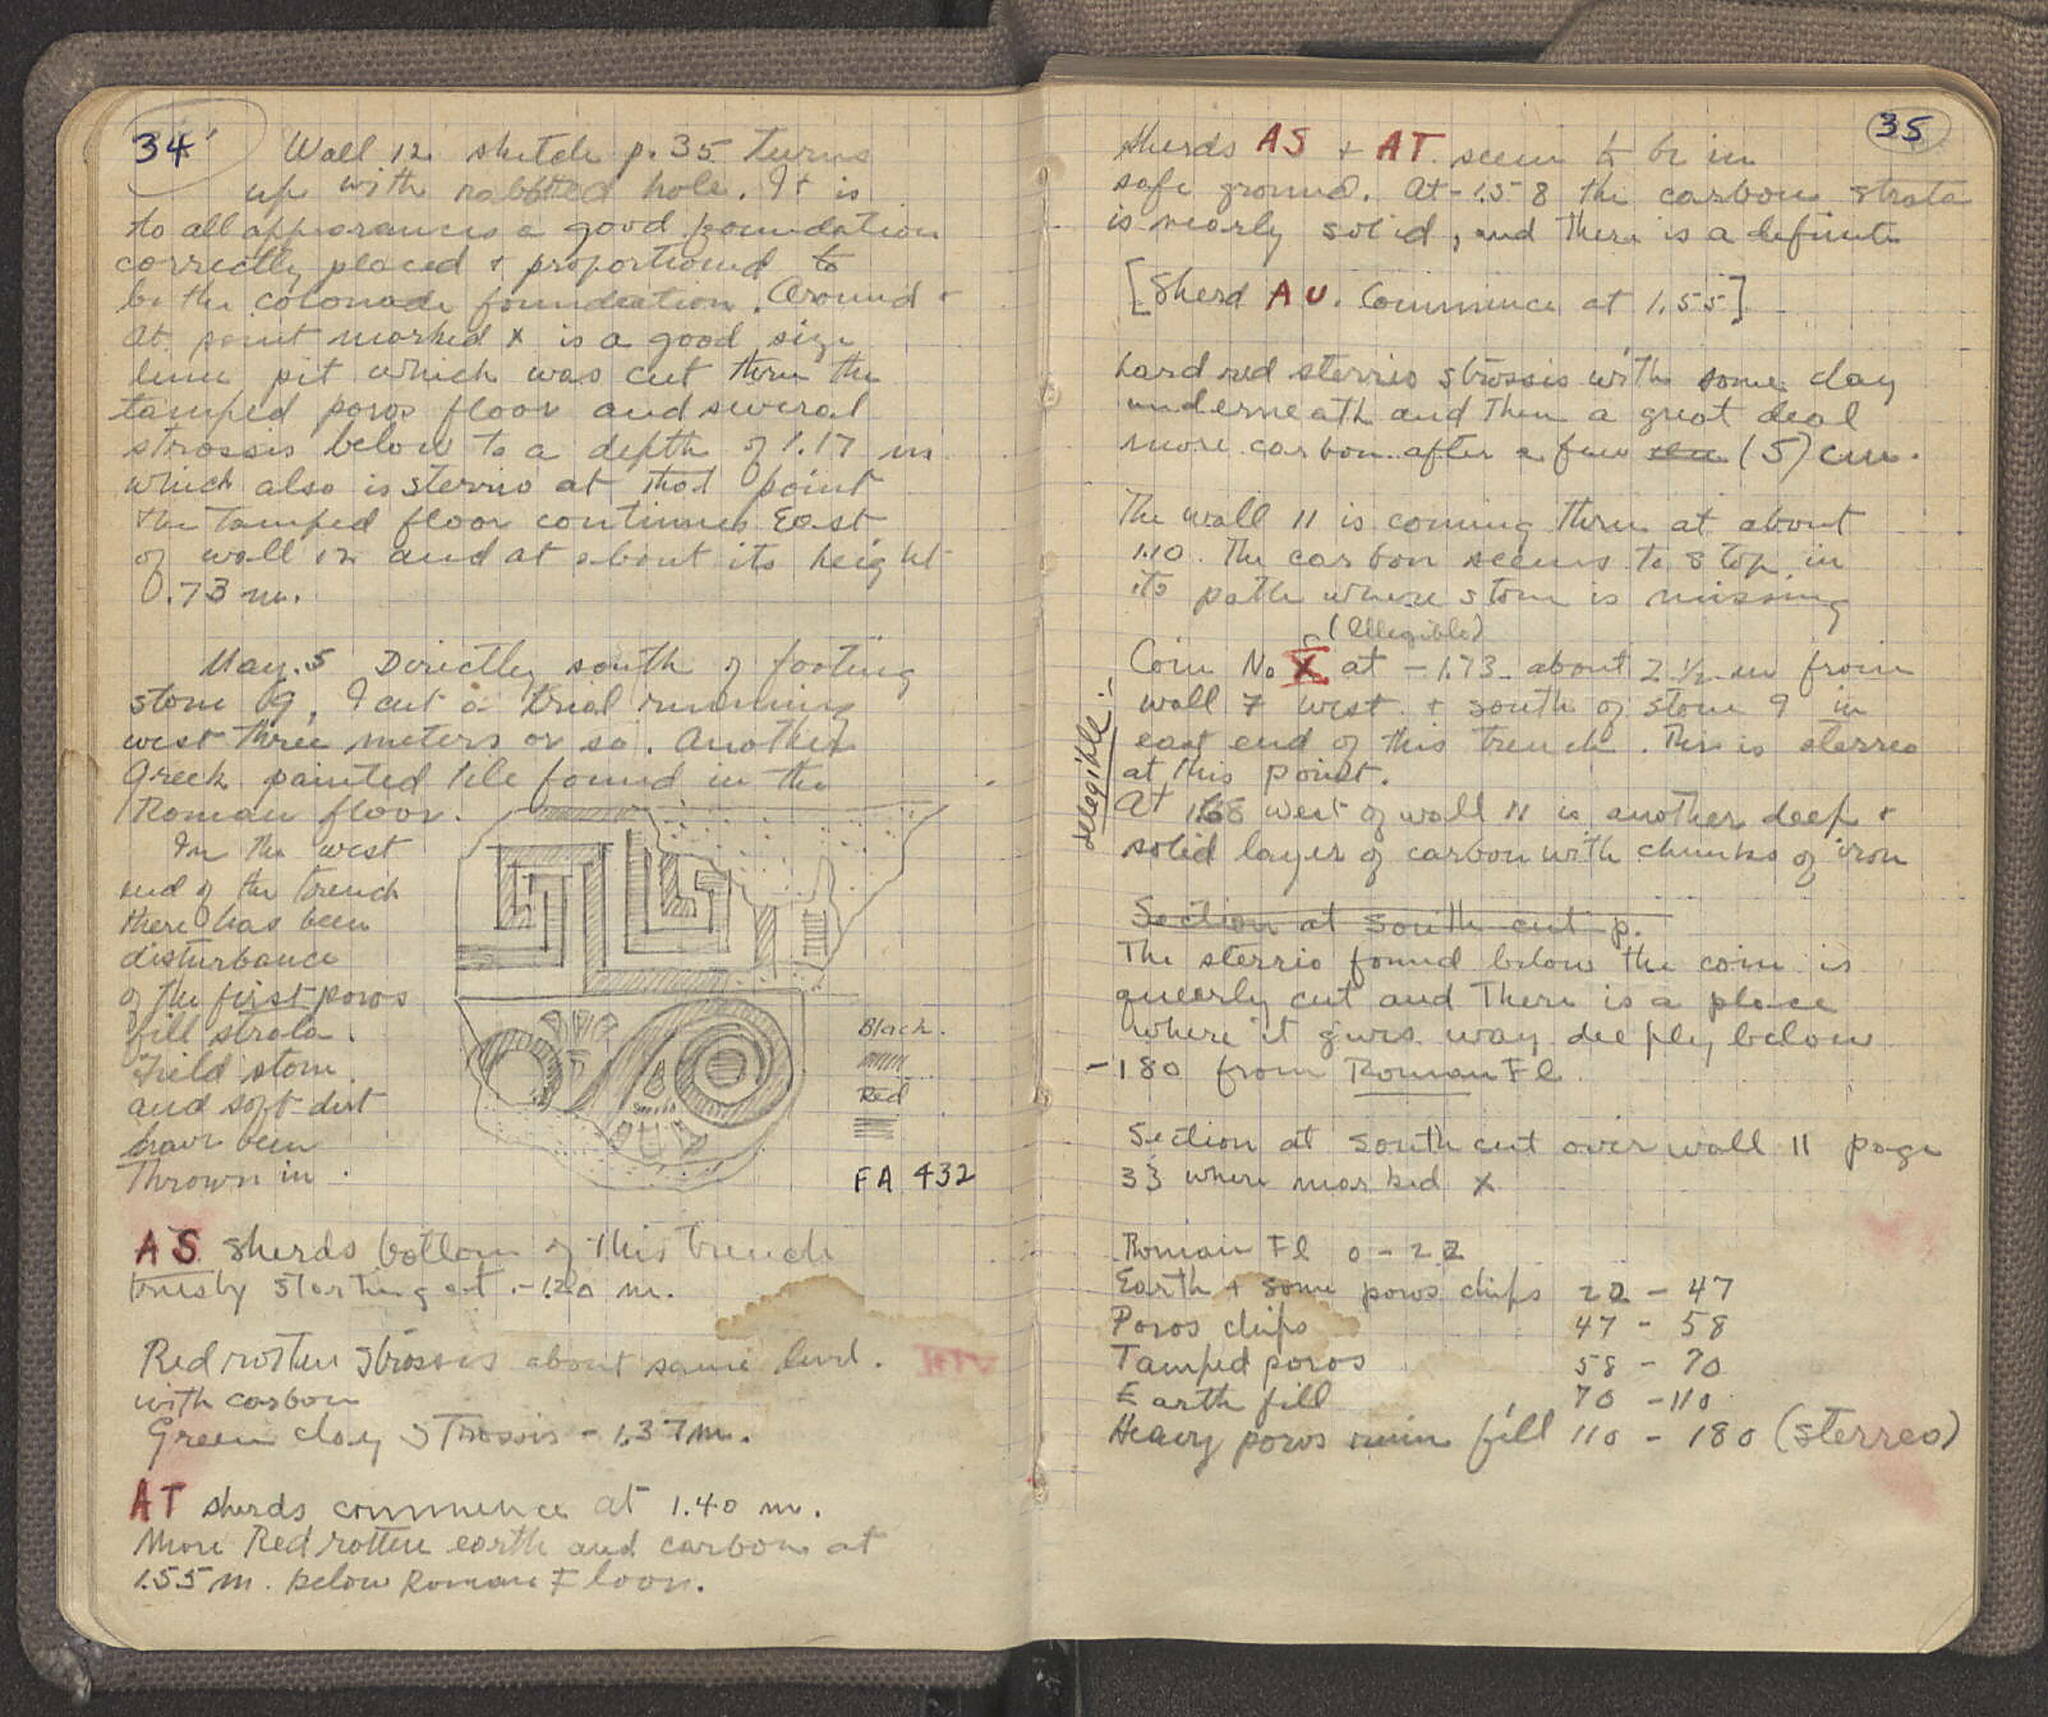 34
Wall 12 sketch p. 35 turns
up with rabbtted hole. It is
to all appearances a good foundation
correctly placed + proportioned to
be the colonade foundation. Around +
at point marked x is a good size
lime pit which was cut thru the
tamped poros floor and several
strossis below to a depth of 1.17 m
which also is sterrio at that point
the tamped floor continues East
of wall 12 and at about its height
0.73 m.
May. 5 Directly south of footing
stone 19, I cut a trial running
west three meters or so. Another
Greek painted tile found in the
Roman floor.
In the west
end of the trench
there has been
disturbance
of the first poros
fill strata.
Field stone
and soft dirt
have been
thrown in.
Black.
Red
FA 432
AS sherds bottom of this trench
starting at -1.20 m.
Red rotten strossis about same level.
with carbon
Green clay strossis - 1.37 m.
AT sherds commence at 1.40 m.
More Red rotten earth and carbon at
1.55 m. below Roman Floor.
35
Sherds AS + AT seem to be in
safe ground. At -1.58 the carbon strata
is nearly solid, and there is a definite
[Sherd AU. Commence at 1.55]
hard red sterrio strossis with some clay
underneath and then a great deal
more carbon after a few (5) cm.
The wall 11 is coming thru at about
1.10. The carbon seems to stop in
its path where stone is missing
(illegible)
Coin No X at -1.73 about 2 1/2 m from
wall 7 west + south of stone 9 in
east end of this trench. This is sterreo
at this point.
illegible!
At 1.68 west of wall 11 is another deep +
solid layer of carbon with chunks of iron
Section at south cut p.
The sterrio found below the coin is
queerly cut and there is a place
where it gives way deeply below
-180 from Roman Fl
Section at south cut over wall 11 page
33 where marked x
Roman Fl 0 - 22
Earth + some poros chips 22 - 47
Poros chips 47 - 58
Tamped poros 58 - 70
Earth fill 70 - 110
Heavy poros ruin fill 110 - 180 (sterreo)